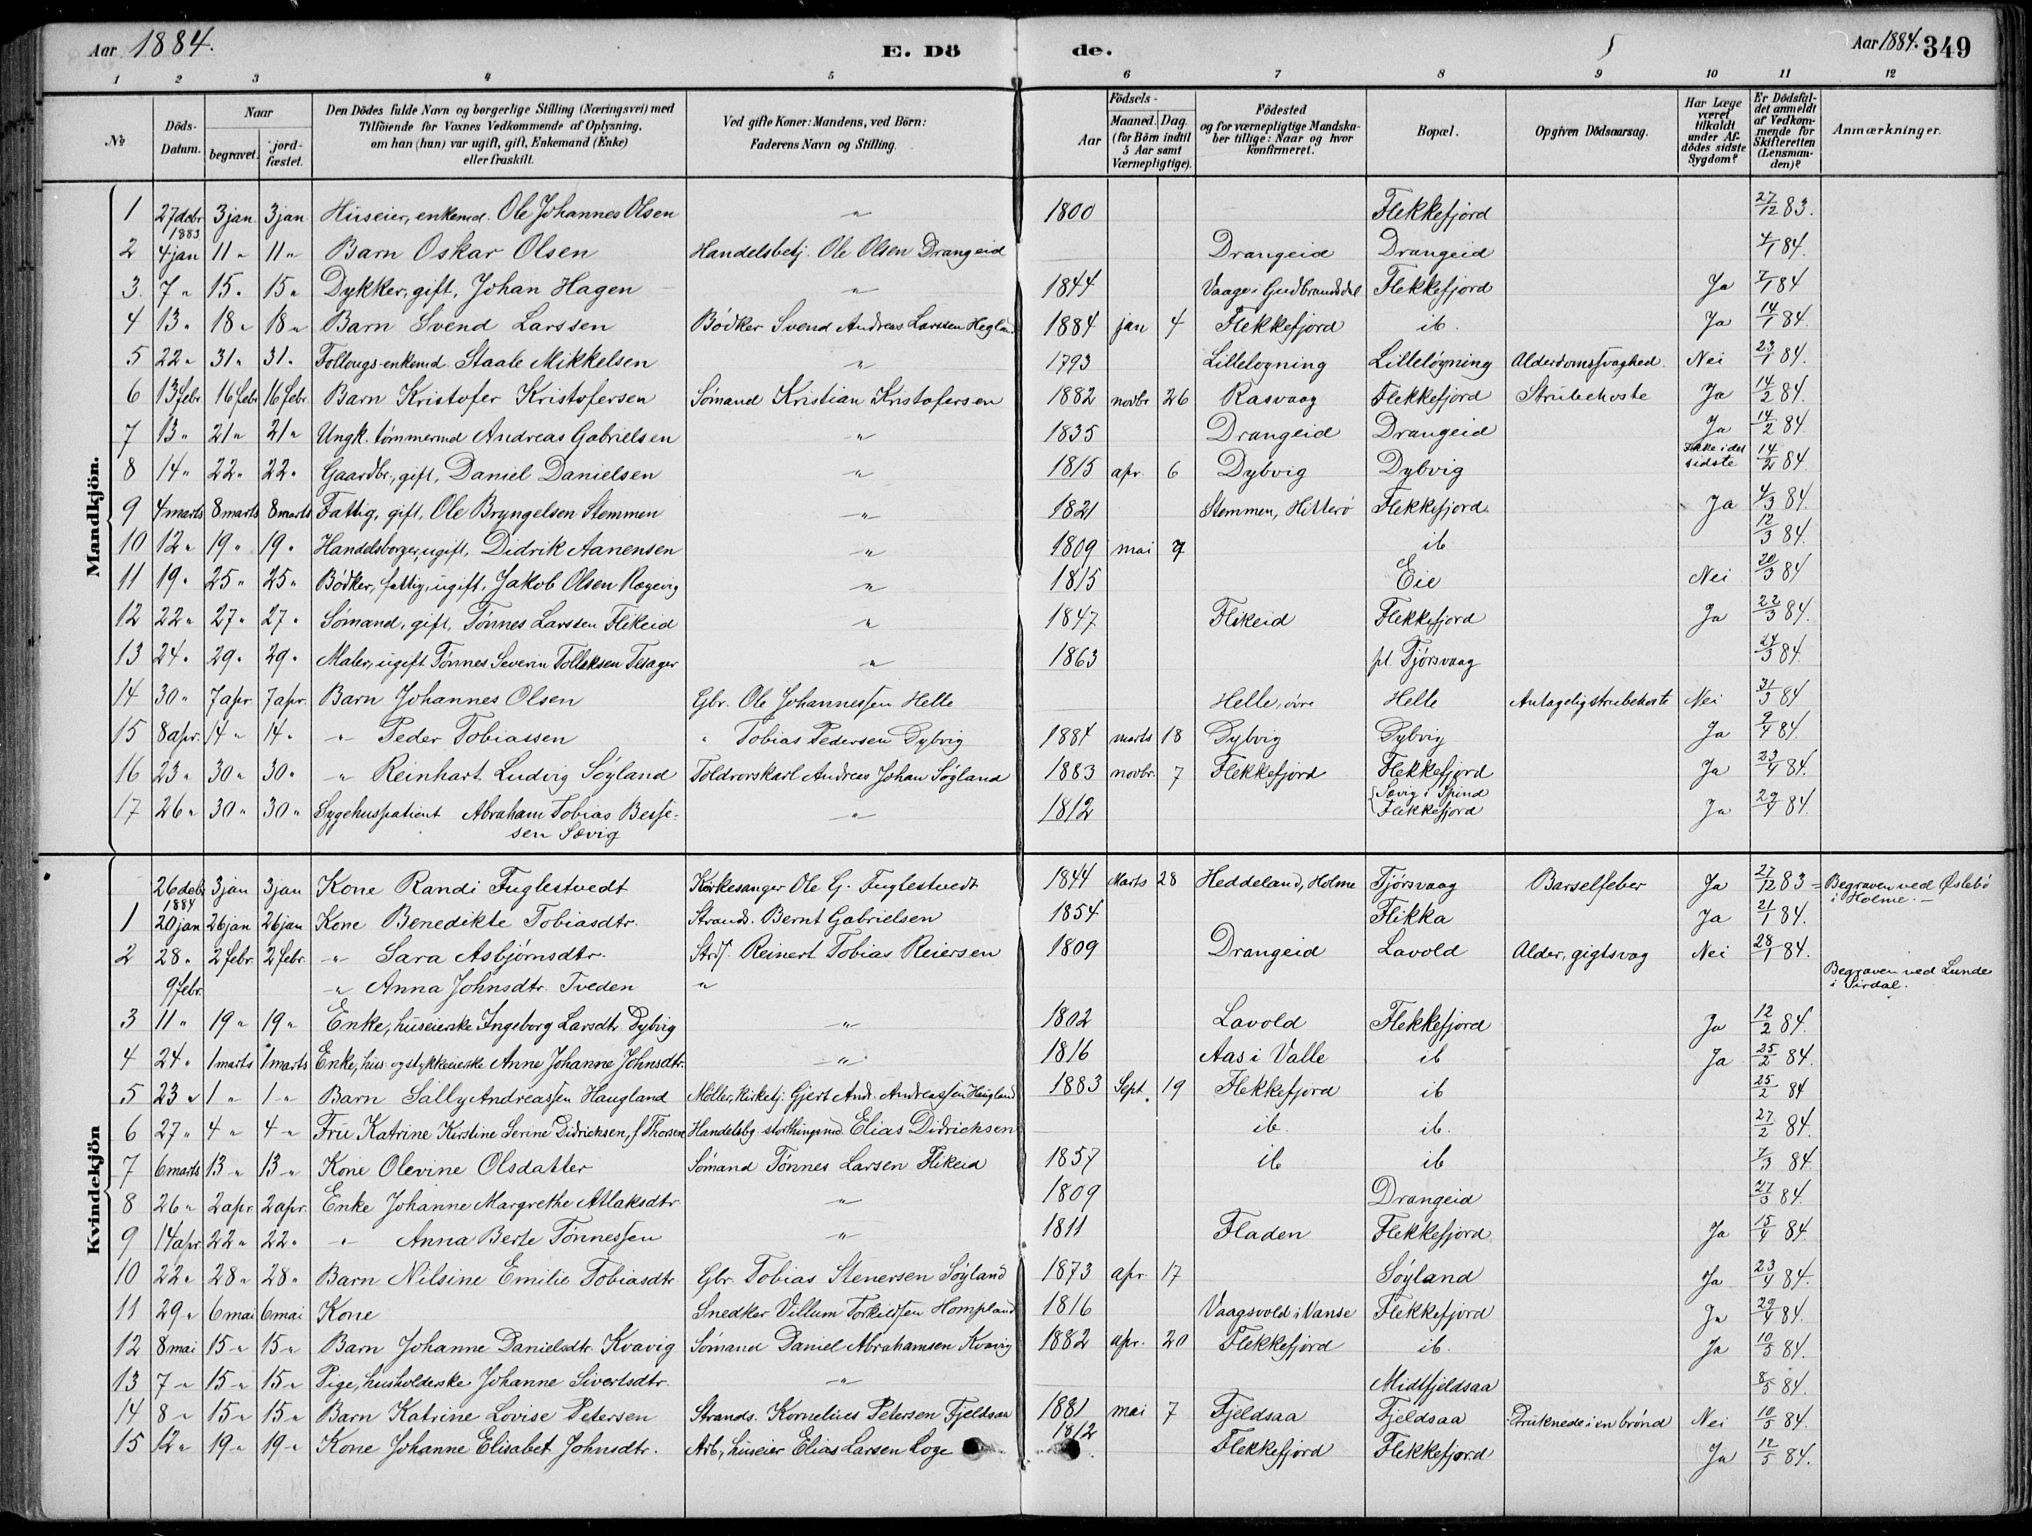 Aar 1884.
E. Dö
de.
Aar 1884. 349
1 2 3 4 5 6 7 8 9 10 11 12
No
Döds-Datum.
Naar
begravet.
jord-fæstet.
Den Dödes fulde Navn og borgerlige Stilling (Næringsvei) med
Tilföiende for Voxnes Vedkommende af Oplysning,
om han (hun) var ugift, gift, Enkemand (Enke)
eller fraskilt.
Ved gifte Koner: Mandens, ved Börn:
Faderens Navn og Stilling.
Födsels-
Aar
Maaned. Dag.
(for Börn indtil
5 Aar samt
Værnepligtige).
Födested
og for værnepligtige Mandska-
ber tillige: Naar og hvor
konfirmeret.
Bopæl.
Opgiven Dödsaarsag.
Har Læge
været
tilkaldt
under Af-
dödes sidste
Sygdom?
Er Dödsfal-
det anmeldt
af Vedkom-
mende for
Skifteretten
(Lensman-
den)?
Anmærkninger.
Mandkjön.
1 27 debr 1883 3 jan 3 jan Huseier, enkemd. Ole Johannes Olsen " 1800 Flekkefjord 27/12 83.
2 4 jan 11 " 11 " Barn Oskar Olsen Handelsbetj. Ole Olsen Drangeid Drangeid Drangeid 4/1 84.
3. 7 " 15 " 15 " Dykker, gift, Johan Hagen " 1844 Vaage i Gudbrandsdal Flekkefjord Ja 7/1 84
4 13 " 18 " 18 " Barn Svend Larssen Bødker Svend Andreas Larssen 1884 jan 4 Flekkefjord ib. Ja 14/1 84.
5 22 " 31 " 31 " Follougs-enkemd. Staale Mikkelsen " 1793 Lilleløgning Lilleløgning Alderdomssvaghed. Nei 23/1 84.
6 13 febr 16 febr 16 febr. Barn Kristofer Kristofersen Sømand Kristian Kristofersen 1882 novbr 26 Rasvaag Flekkefjord Strubehoste Ja 14/2 84.
7 13 " 21 " 21 " Ungk. tømmermd Andreas Gabrielsen " 1835 Drangeid Drangeid Ja 14/2 84.
8 14 " 22 " 22 " Gaardbr., gift, Daniel Danielsen " 1815 apr. 6 Dybvig Dybvig Ikke i det sidste 14/2 84.
9 4 marts 8 marts 8 marts Fattig, gift, Ole Bryngelsen Stemmen " 1821 Stemmen, Hitterø Flekkefjord. Ja 4/3 84.
10 12 " 19 " 19 " Handelsborger, ugift, Didrik Aanensen " 1809 mai 7 ib 12/3 84.
11 19 " 25 " 25 " Bødker, fattig, ugift, Jakob Olsen Ragevig " 1815 Eie Nei 20/3 84
12 22 " 27 " 27 " Sømand, gift, Tønnes Larssen Flikeid " 1847 Flikeid Flekkefjord Ja 22/3 84.
13 24 " 29 " 29 " Maler, ugift Tønnes Severin Tollaksen Tesager " 1863 pt. Tjørsvaag 24/3 84.
14 30 " 7 apr 7 apr. Barn Johannes Olsen Gbr. Ole Johannessen Helle Helle, øvre Helle Antagelig strubehoste Nei 31/3 84
15 8 apr. 14 " 14 " " Peder Tobiassen " Tobias Pedersen Dybvig 1884 marts 18 Dybvig Dybvig Ja 9/4 84.
16 23 " 30 " 30 " " Reinhart Ludvig Søyland Toldrorskarl Andreas Johan Søyland 1883 novbr. 7 Flekkefjord Flekkefjord Ja 23/4 84.
17 26 " 30 " 30 " Sygehuspatient Abraham Tobias Besse-
sen Sævig " 1812 Sævig i Spind
Flekkefjord Ja 29/4 84.
Kvindekjön
26 debr 3 jan 3 jan Kone Randi Fuglestvedt Kirkesanger Ole G. Fuglestvedt 1844 Marts 28 Heddeland, Holme Tjørsvaag Barselfeber Ja 27/12 83 = Begraven ved Øslebø
i Holme. –
1 1884 20 jan 26 jan 26 jan Kone Benedikte Tobiasdtr. Strands. Bernt Gabrielsen 1854 Flikka Ja 21/1 84.
2 28 " 2 febr. 2 febr. " Sara Asbjørnsdtr. Strs. Reinert Tobias Reiersen 1809 Drangeid Lavold Alder, gigtsvag Nei 28/1 84.
9 febr. " Anna Johnsdtr. Tveden " Begraven ved Lunde
i Sirdal.
3 11 " 19 " 19 " Enke, huseierske Ingeborg Larsdtr. Dybvig " 1802 Lavold Flekkefjord Ja 12/2 84.
4 24 " 1 marts 1 marts Enke, hus- og stykkeierske Anne Johanne Johnsdtr. " 1816 Aas i Valle ib Ja 25/2 84.
5 23 " 1 " 1 " Barn Sally Andreassen Haugland Møller, kirketj. Gjert And. Andreassen Haugland 1883 Sept. 19 Flekkefjord ib 25/2 84
6 27 " 4 " 4 " Fru Katrine Kirstine Serine Didricksen, f. Thorsen Handelsbg. storthingsmd Elias Didricksen ib. ib. 27/2 84.
7 6 marts 13 " 13 " Kone Olevine Olsdatter Sømand Tønnes Larsen Flikeid 1857 ib ib 7/3 84.
8 26 " 2 apr 2 apr. Enke Johanne Margrethe Atlaksdtr. " 1809 Drangeid 27/3 84.
9 14 apr 22 " 22 " " Anna Berte Tønnessen " 1811 Fladen Flekkefjord Ja 15/4 84.
10 22 " 28 " 28 " Barn Nilsine Emilie Tobiasdtr Gbr. Tobias Stenersen Søyland 1873 apr. 17 Søyland Ja 23/4 84.
11 29 " 6 mai 6 mai Kone Snedker Villum Torkildsen Hompland 1816 Vaagsvold i Vanse Flekkefjord Ja 29/4 84.
12 8 mai 15 " 15 " Barn Johanne Danielsdtr. Kvavig Sømand Daniel Abrahamsen Kvavig 1882 apr. 20 Flekkefjord ib. Ja 10/5 84.
13 7 " 15 " 15 " Pige, husholderske Johanne Sivertsdtr. " Midtfjeldsaa 8/5 84.
14 8 " 15 " 15 " Barn Katrine Lovise Petersen Strands. Kornelius Petersen Fjeldsaa 1881 mai 7 Fjeldsaa Fjeldsaa Druknede i en brønd Nei 10/5 84.
15 12 " 19 " 19 " Kone Johanne Elisabet Johnsdtr. Arb., huseier Elias Larsen Loge 1812 Flekkefjord Flekkefjord Ja 12/5 84.